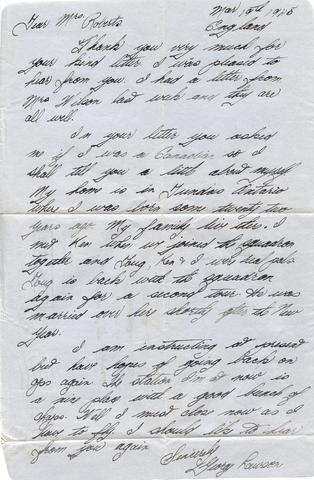 Mar 15th 1945
England
Dear Mrs. Roberts
Thank you very much for
your kind letter. I was pleased to
hear from you. I had a letter from
Mrs Wilson last week and they are
all well.
In your letter you asked
me if I was a Canadian so I
shall tell you a little about myself
My home is in Dundas Ontario
where I was born some twenty two
years ago. My family live there. I
met Ken when we joined the squadron
together and Doug, & I were real pals
Doug is back with the squadron
again for a second tour. He was
married over here shortly after the New
Year.
I am instructing at present
but have hopes of going back on
ops again. The station I'm at now is
a nice place with a good bunch of
chaps. Well I must close now as I
have to fly. I should like to hear
from you again
Sincerely
George Lawson